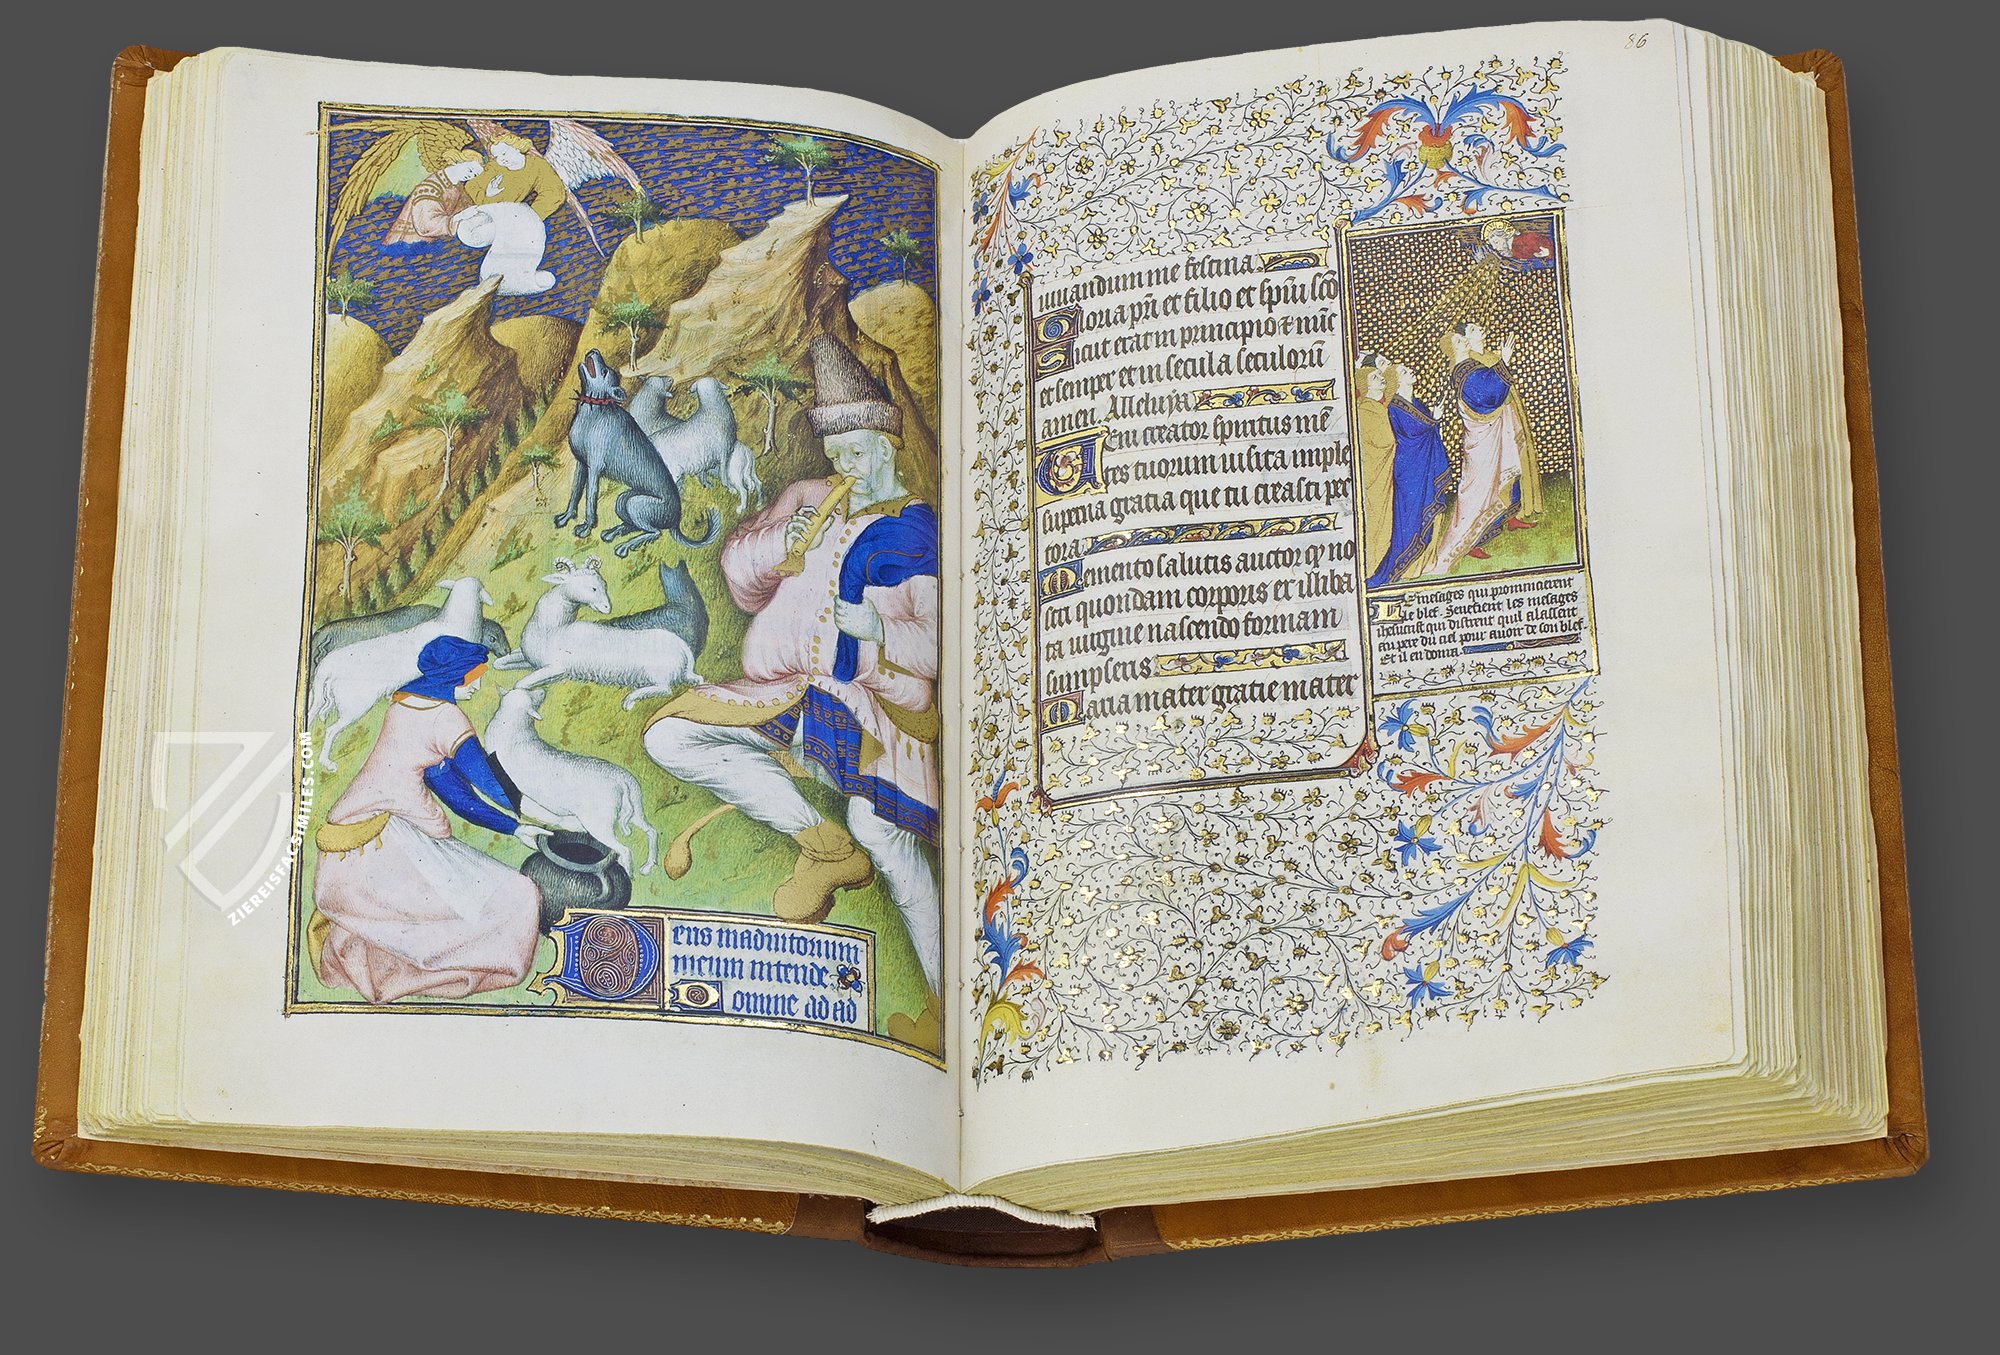 Deus in adiutorium
meum intende.
Domine ad ad
86
iuuandum me festina.
Gloria pri et filio et spui sco
Sicut erat in principio & nuc
et semper et in secula seculoru
amen. Alleluya.
Ueni creator spiritus me
tes tuorum uisita imple
superna gratia que tu creasti pec
tora.
Memento salutis auctor qp no
stri quondam corporis ex illiba
ta uirgine nascendo formam
sumpseris
Maria mater gratie mater
messages qui prommierent
le blef. Senefient les mesages
ihesucrist qui distrent quil alassent
au pere du ciel pour auoir de son blef.
Et il en dona
ZIEREISFACSIMILES.COM